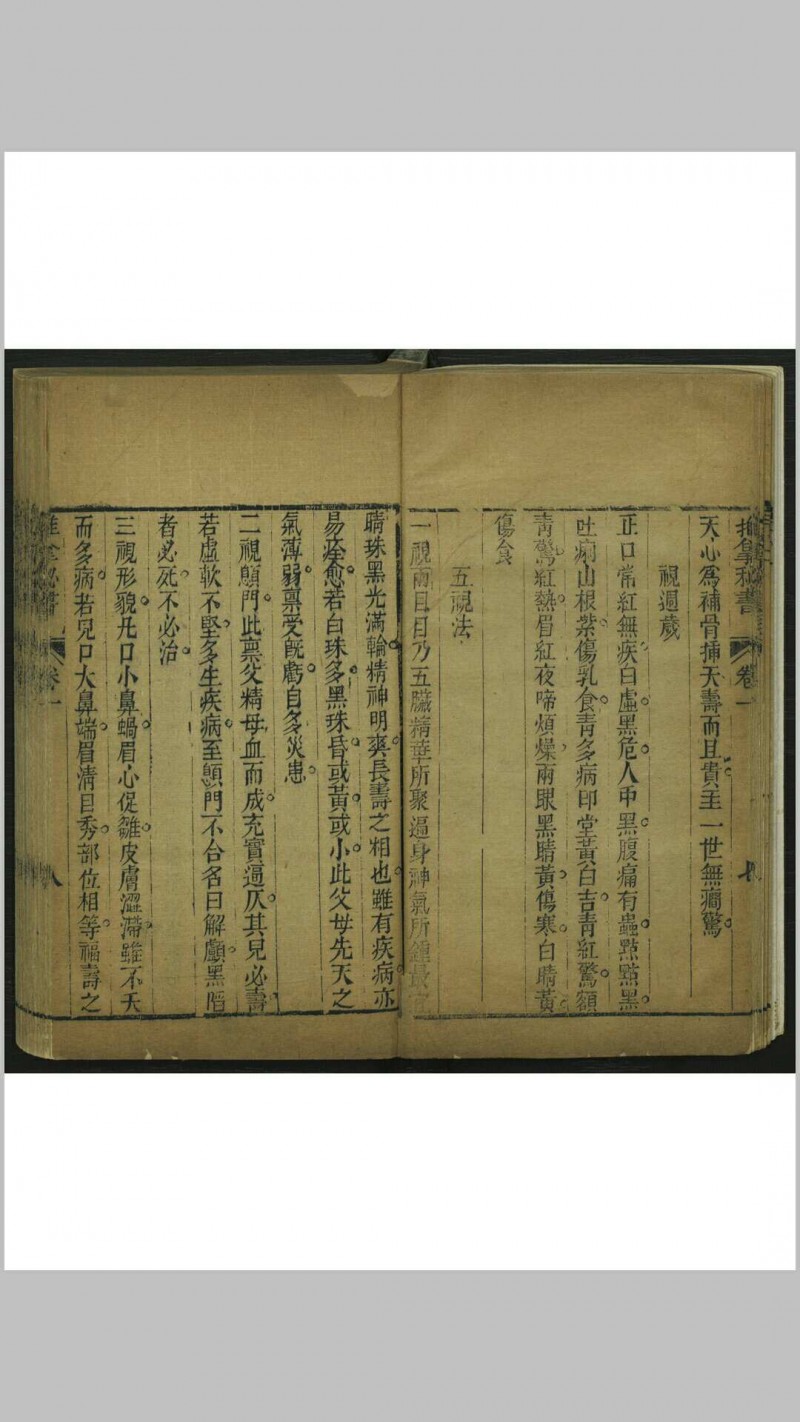 推拿秘書 卷一 七
天心爲補骨揷天壽而且貴主一世無癎驚
視週歲
正口常紅無疾白虛黑危人中黑腹痛有蟲點點黑
吐痢山根紫傷乳食青多病印堂黃白吉青紅驚額
青驚紅熱眉紅夜啼煩燥兩眼黑睛黃傷寒白睛黃
傷食
五視法
一視兩目曰乃五臟精華所聚逼身神氣所鍾最
睛珠黑光滿輪精神明爽長壽之相也雖有疾病亦
易痊愈若白珠多黑珠昏或黃或小此父母先天之
氣薄弱禀受旣虧自多災患
二視顖門此禀父精母血而成充實逼仄其兒必壽
若虛軟不堅多生疾病至顖門不合名曰解顱黑暗
者必死不必治
三視形貌凢口小鼻蝸眉心促雛皮膚澀滯雖不夭
而多病若兒口大鼻端眉清目秀部位相等福壽之
推拿秘書 卷一 八